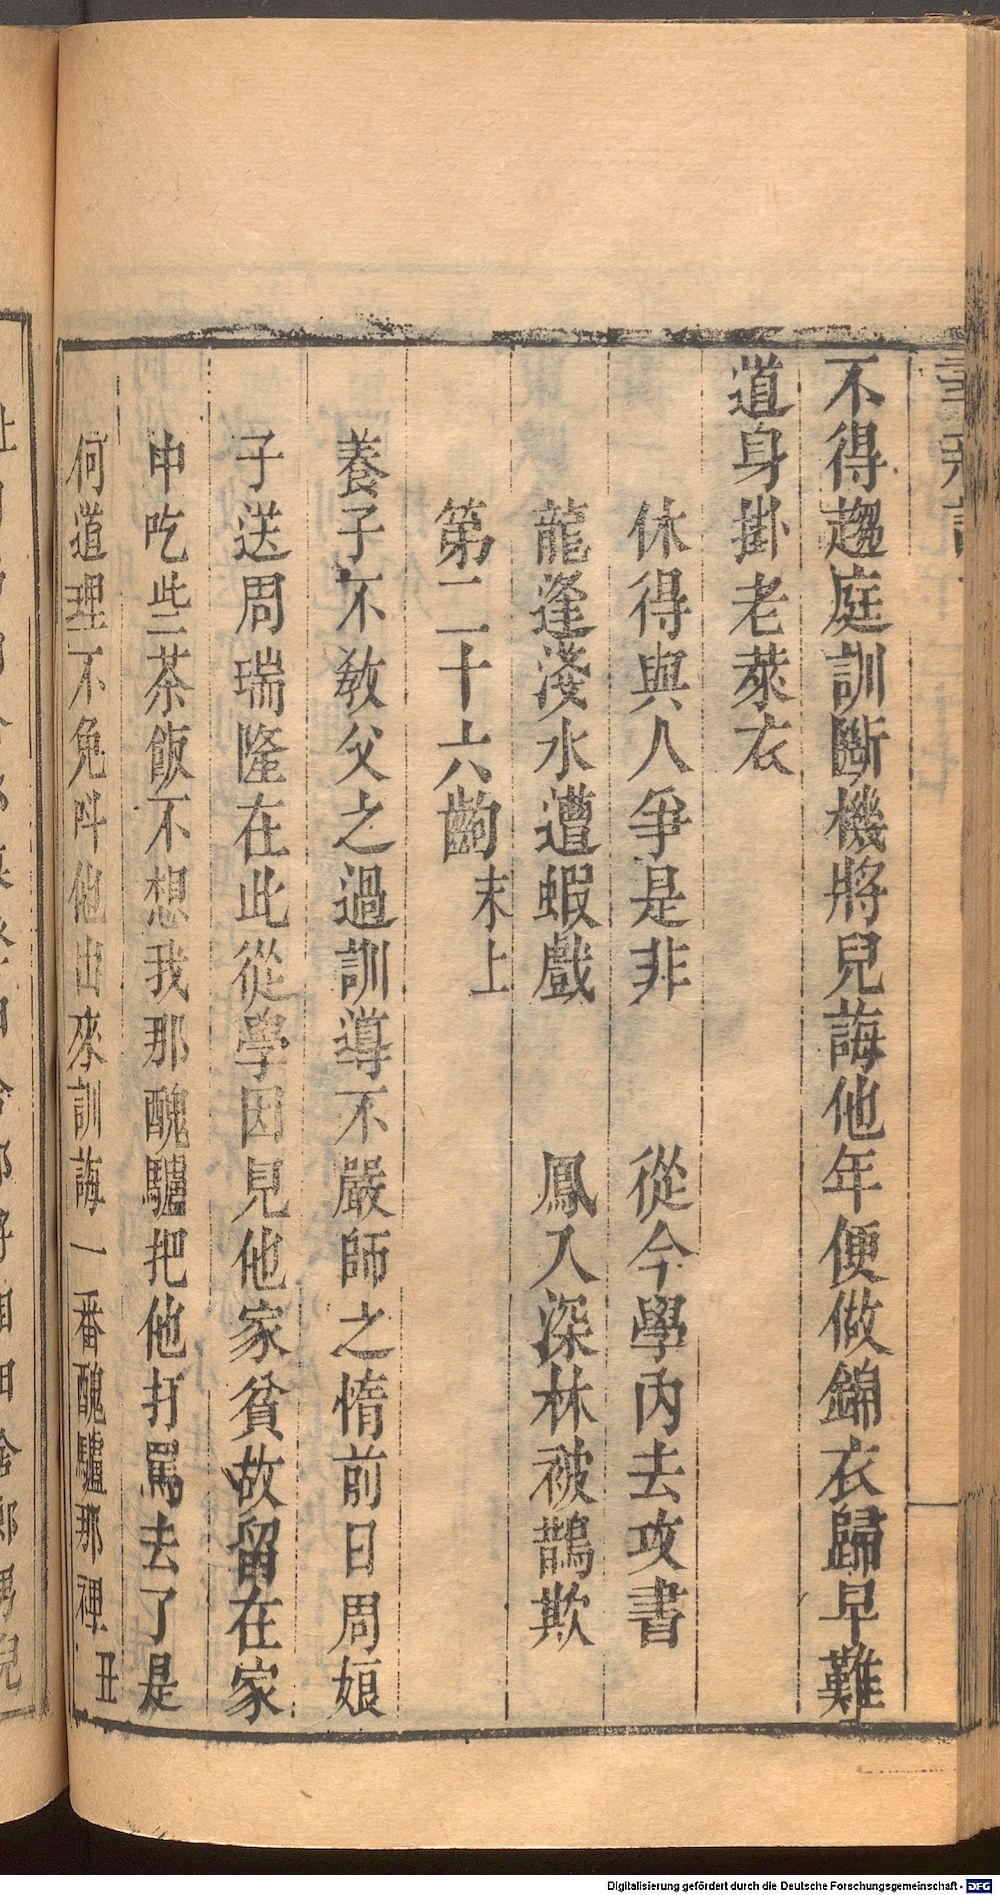 不得趨庭訓斷機將兒誨他年便做錦衣歸早難
道身掛老萊衣
休得與人爭是非 從今學內去攻書
龍逢淺水遭蝦戲 鳳入深林被鵲欺
第二十六齣 末上
養子不敎父之過訓導不嚴師之惰前日周娘
子送周瑞隆在此從學因見他家貧故留在家
中吃些茶飯不想我那醜驢把他打罵去了是
何道理不免呌他出來訓誨一番醜驢那裡 丑
Digitalisierung gefördert durch die Deutsche Forschungsgemeinschaft - DFG